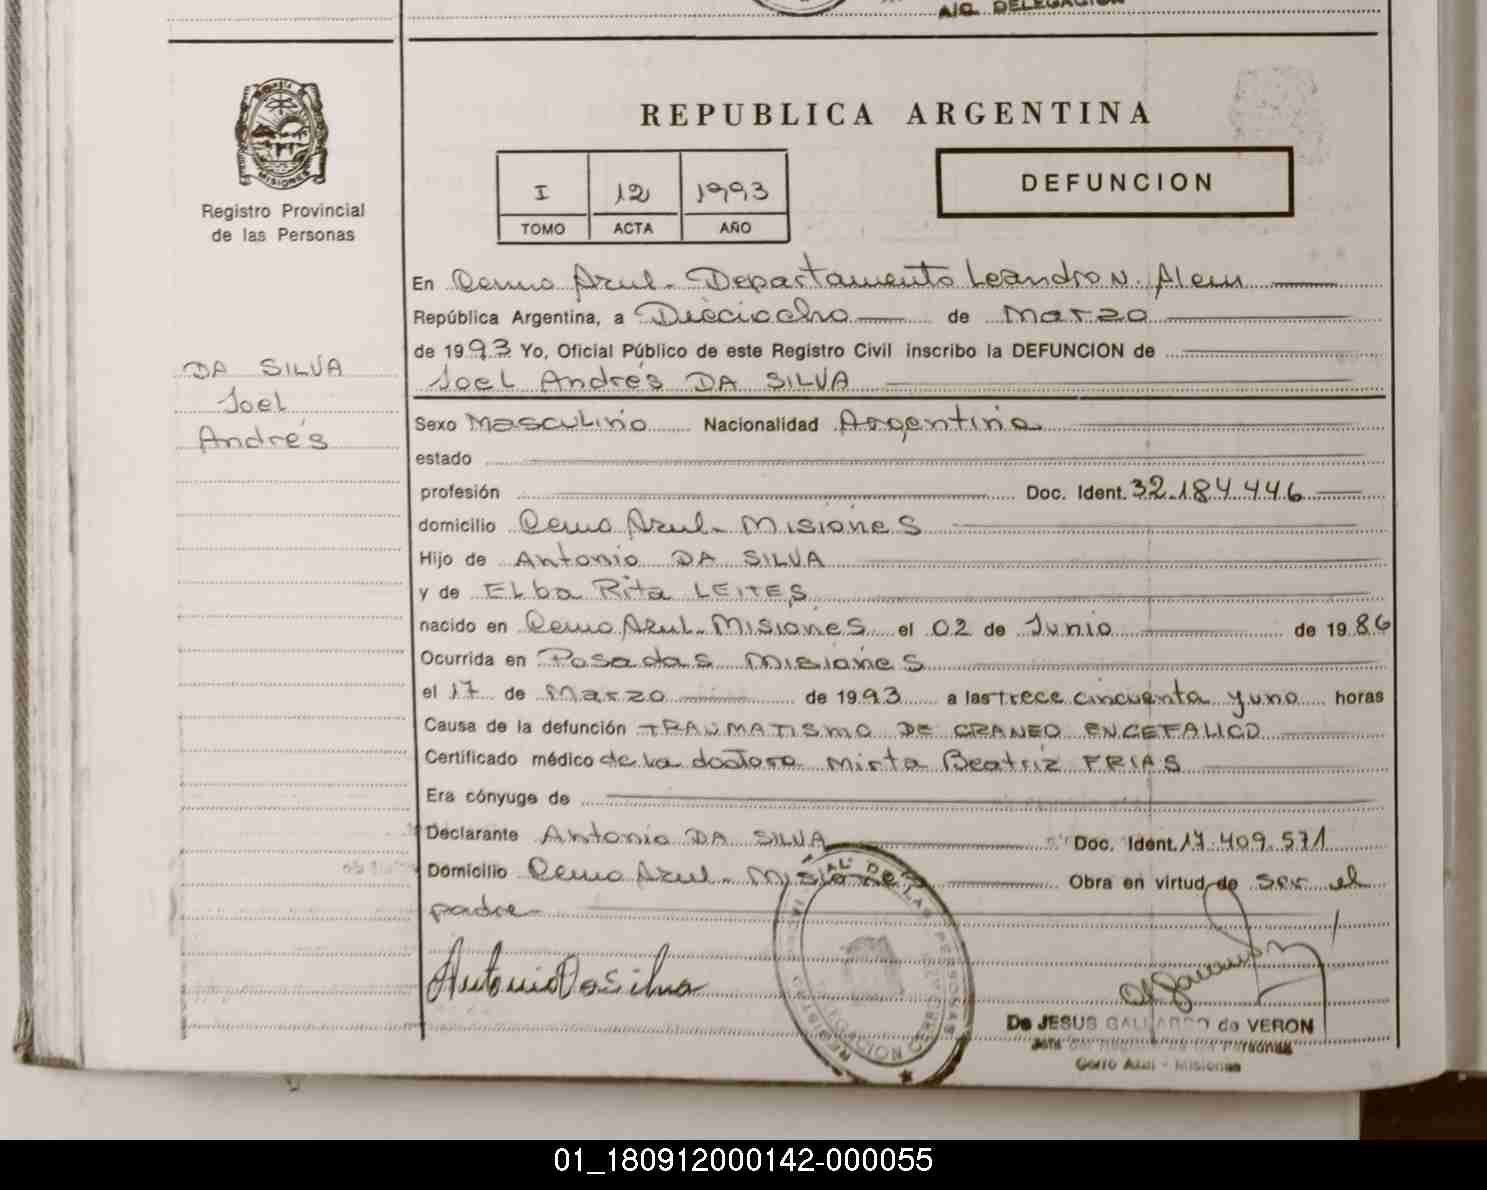 AJC. DELEGACION
REPUBLICA ARGENTINA
MISIONES
Registro Provincial
de las Personas
I 12 1993
TOMO ACTA AÑO
DEFUNCION
En Cerro Azul - Departamento Leandro N. Alem
República Argentina, a Dieciocho de Marzo
de 1993 Yo, Oficial Público de este Registro Civil inscribo la DEFUNCION de
Joel Andrés DA SILVA
DA SILVA
Joel
Andrés
Sexo Masculino Nacionalidad Argentina
estado
profesión Doc. Ident. 32.184.446
domicilio Cerro Azul - Misiones
Hijo de Antonio DA SILVA
y de Elba Rita LEITES
nacido en Cerro Azul - Misiones el 02 de Junio de 1986
Ocurrida en Posadas Misiones
el 17 de Marzo de 1993 a las trece cincuenta y uno horas
Causa de la defunción TRAUMATISMO DE CRANEO ENCEFALICO
Certificado médico de la doctora Mirta Beatriz FRIAS
Era cónyuge de
Declarante Antonio DA SILVA Doc. Ident. 17.409.571
Domicilio Cerro Azul - Misiones Obra en virtud de ser el
padre
Antonio Da Silva
DE LAS PERSONAS
DELEGACION CERRO
De JESUS GALLARDO de VERON
Jefe del Registro de las Personas
Cerro Azul - Misiones
01_180912000142-000055